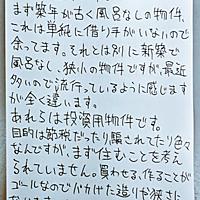 まず築年が古く風呂なしの物件、
これは単純に借り手がいないので
余ってます。それとは別に新築で
風呂なし、狭小の物件ですが、最近
多いので流行っているように感じます
が全く違います。
あれらは投資用物件です。
目的は節税だったり騙されてたり色々
なんですが、まず住むことを考え
られていません。買わせる、作ることが
ゴールなのでバカげた造りや狭さに